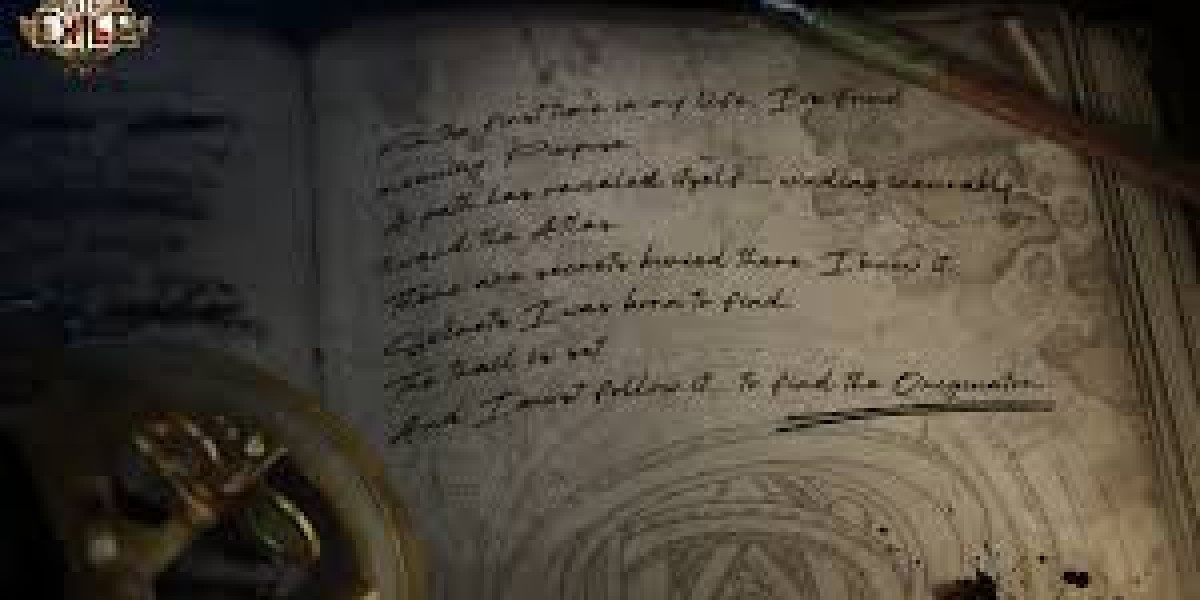 EXILE
The first time in my life, I've found
meaning. Purpose.
A path has revealed itself - winding inexorably
toward the Atlas
There are secrets buried there. I know it.
Secrets I was born to find.
The trail is set
And I must follow it... to find the Originator...